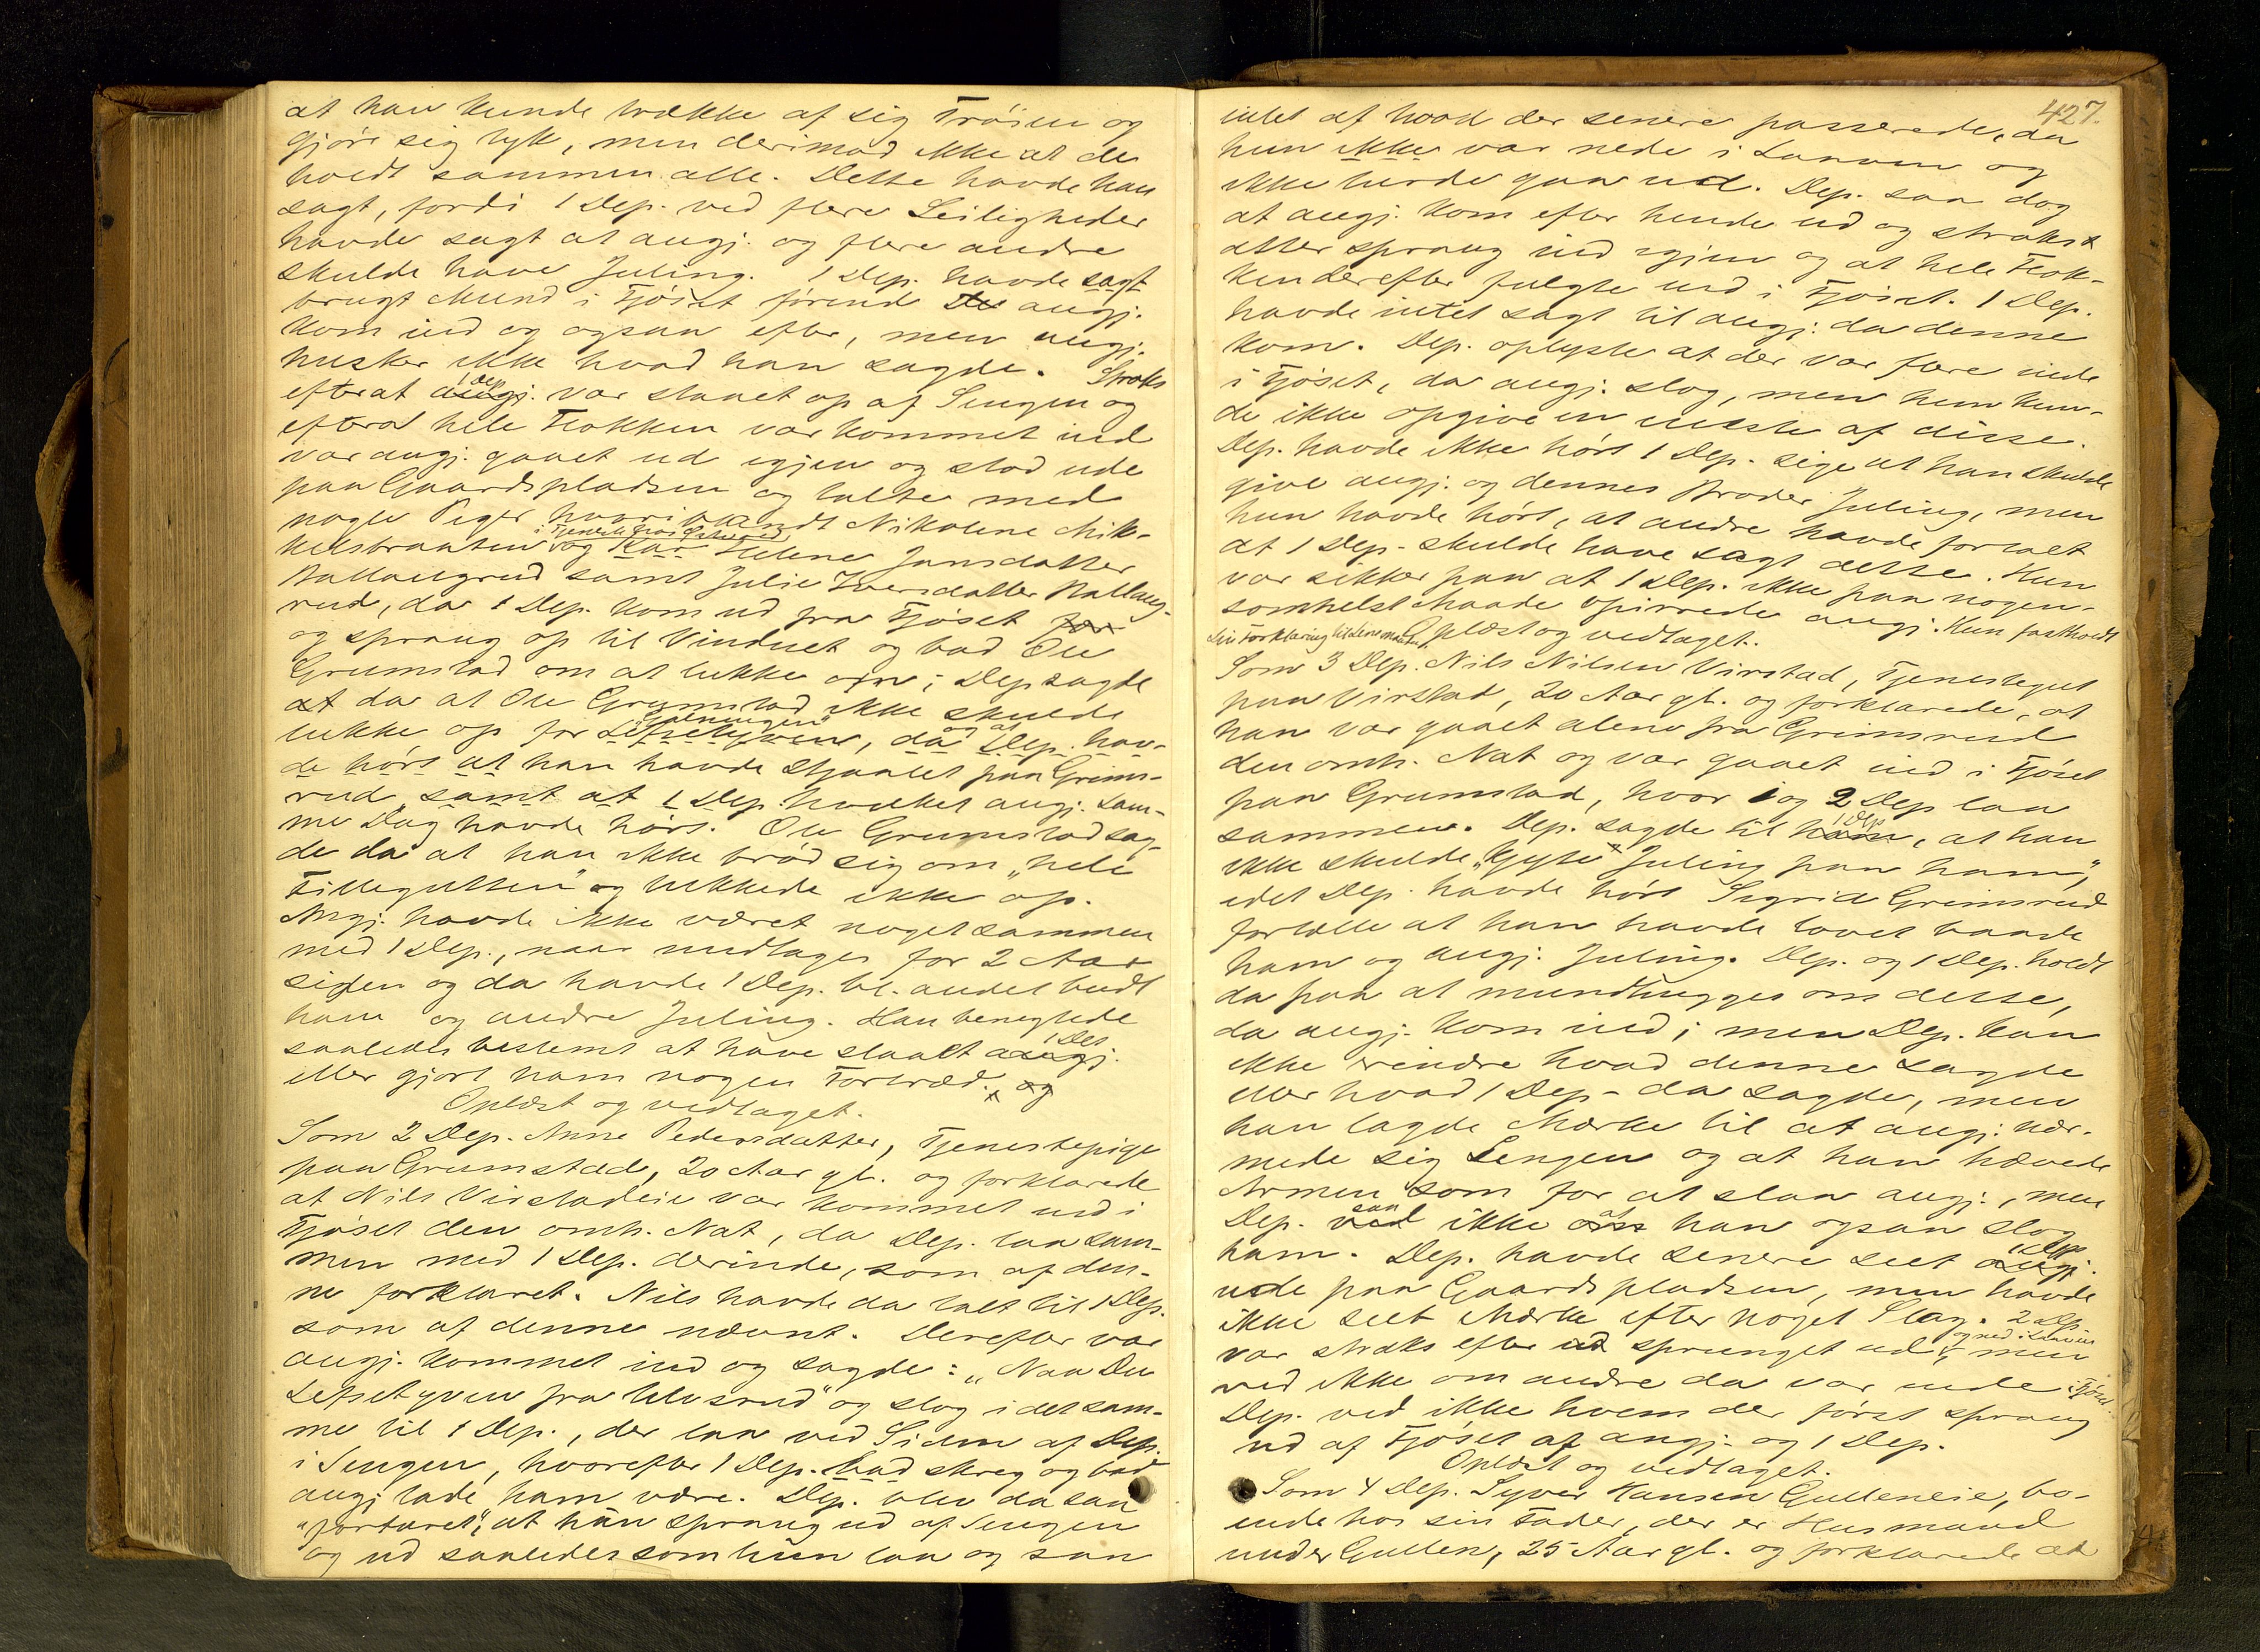 at han kunde trække af sig Trøien og
gjøre sig lyk, men derimod ikke at de
holdt sammen alle. Dette havde han
sagt, fordi 1 Dep. ved flere Leiligheder
havde sagt at angj. og flere andre
skulde have Juling. 1 Dep. havde sagt
brugt Mund i Fjøset førend Du angj.
kom ind og ogsaa efter, men angj.
husker ikke hvad han sagde. Straks
efterat angj. 1 Dep var staaet op af Sengen og
efterat hele Flokken var kommet ind
var angj. gaaet ud igjen og stod ude
paa Gaardspladsen og talte med
nogle Piger hvoriblandt Nikoline Mik-
kelsbraaten i Tjeneste hos og Kar Helene Jansdatter
Ballangrud samt Julie Iversdatter Ballang-
rud, da 1 Dep. kom ud fra Fjøset for
og sprang op til Vinduet og bad Ole
Grumstad om at lukke op; Dep sagde
at da at Ole Grumstad ikke skulde
lukke op for Lefsetyven, da og at Dep. hav-
de hørt at han havde stjaalet paa Grims-
rud samt at 1 Dep. hvilket angj. sam-
me Dag havde hørt. Ole Grumstad sag-
de da at han ikke brød sig om "hele
Fillegutten" og lukkede ikke op.
Angj. havde ikke været noget sammen
med 1 Dep., naar undtages for 2 Aar
siden og da havde 1 Dep. bl. andet budt
ham og andre Juling. Han benegtede
saaledes bestemt at have slaaet angj. 1 Dep
eller gjort ham nogen Fortræd. og
Oplæst og vedtaget.
Som 2 Dep. Anne Pedersdatter, Tjenestepige
paa Grumstad, 20 Aar gl. og forklarede
at Nils Virstadeie var kommet ind i
Fjøset den omh. Nat, da Dep. laa sam-
men med 1 Dep. derinde, som af den-
ne forklaret. Nils havde da talt til 1 Dep.
som af denne nævnt. Derefter var
angj. kommet ind og sagde: "Naa Du
Lefsetyven fra Ulvsrud" og slog i det sam-
me til 1 Dep., der laa ved Siden af Dep.
i Sengen, hvorefter 1 Dep. bad skreg og bad
angj lade ham være. Dep. blev da saa
"forfæret", at hun sprang ud af Sengen
og ud saaledes som hun laa og saa
427.
intet af hvad der senere passerede, da
hun ikke var nede i Laaven og
ikke turde gaa ud. Dep. saa dog
at angj. kom efter hende ud og strakst
atter sprang ind igjen og at hele Flok-
ken derefter fulgte ind i Fjøset. 1 Dep.
havde intet sagt til angj. da denne
kom. Dep. oplyste at der var flere inde
i Fjøset, da angj. slog, men hun kun-
de ikke opgive en eneste af disse.
Dep. havde ikke hørt 1 Dep. sige at han skulde
give angj. og dennes Broder Juling, men
hun havde hørt, at andre havde fortalt
at 1 Dep. skulde have sagt dette. Hun
var sikker paa at 1 Dep. ikke paa nogen-
somhelst Maade opirrede angj. Hun fastholdt
sin Forklaring til Lensmanden. Oplæst og vedtaget.
Som 3 Dep. Nils Nilsen Virstad, Tjenestegut
paa Virstad, 20 Aar gl. og forklarede, at
han var gaaet alene fra Grimsrud
den omh. Nat og var gaaet ind i Fjøset
paa Grumstad, hvor 1 og 2 Dep laa
sammen. Dep. sagde til ham 1 Dep, at han
ikke skulde "kyte" Juling paa ham,
idet Dep. havde hørt Sigrid Grimsrud
fortælle at han havde lovet baade
ham og angj. Juling. Dep. og 1 Dep. holdt
da paa at mundhugges om dette,
da angj. kom ind; men Dep. kan
ikke erindre hvad denne sagde
eller hvad 1 Dep. da sagde, men
han lagde Mærke til at angj. nær-
mede sig Sengen og at han hævede
Armen som for at slaa angj., men
Dep. ved saa ikke om at han ogsaa slog
ham. Dep. havde senere seet angj. 1 Dep
ude paa Gaardspladsen, men havde
ikke seet Mærke efter noget Slag. 2 Dep.
var straks efter ud sprunget ud og ned i Laaven, men
ved ikke om andre da var inde i Fjøset.
Dep. ved ikke hvem der først sprang
ud af Fjøset af angj. og 1 Dep.
Oplæst og vedtaget.
Som 4 Dep. Syver Hansen Gulleneie, bo-
ende hos sin Fader, der er Husmand
under Gullen, 25 Aar gl. og forklarede at